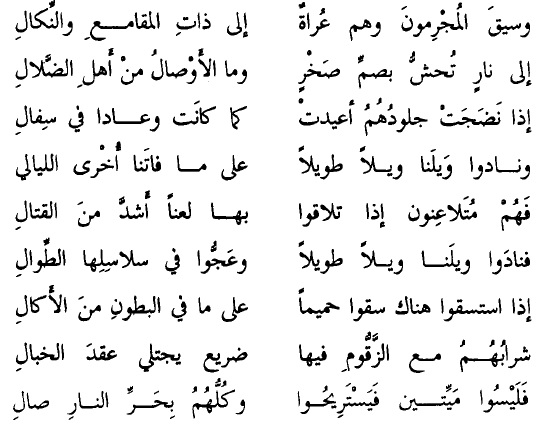 وسيقَ الُمجْرِمونَ وهم عُراةٌ إلى ذاتِ المقامـــعِ والنَّكالِ
إلى نارٍ تُحشُّ بصمِّ صَخْرٍ وما الأَوْصالُ منْ أَهلِ الضَّلالِ
إذا نَضَجَتْ جلودُهُمُ أعيدتْ كما كانَت وعـــادا في سِفالِ
ونـــادوا وَيلَنا ويـــلاً طويلاً على مـــا فاتَنا أُخْرى الليالي
فَهُمْ مُتَلاعِنون إذا تلاقوا بهـــا لعناً أَشدَّ منَ القتالِ
فنادَوا ويلَنـــا ويـــلاً طويلاً وعَجُّوا في سلاسلِها الطِّوالِ
إذا استسقوا هناك سقوا حميماً على ما في البطونِ منَ الأَكالِ
شرابُهُـــمُ مع الزَّقُّومِ فيها ضريع يجتلي عقدَ الخبالِ
فَلَيْسُوا مَيِّتـــين فَيَسْتَرِيحُـوا وكُلُّهُمُ بِحَـــرِّ النارِ صالِ